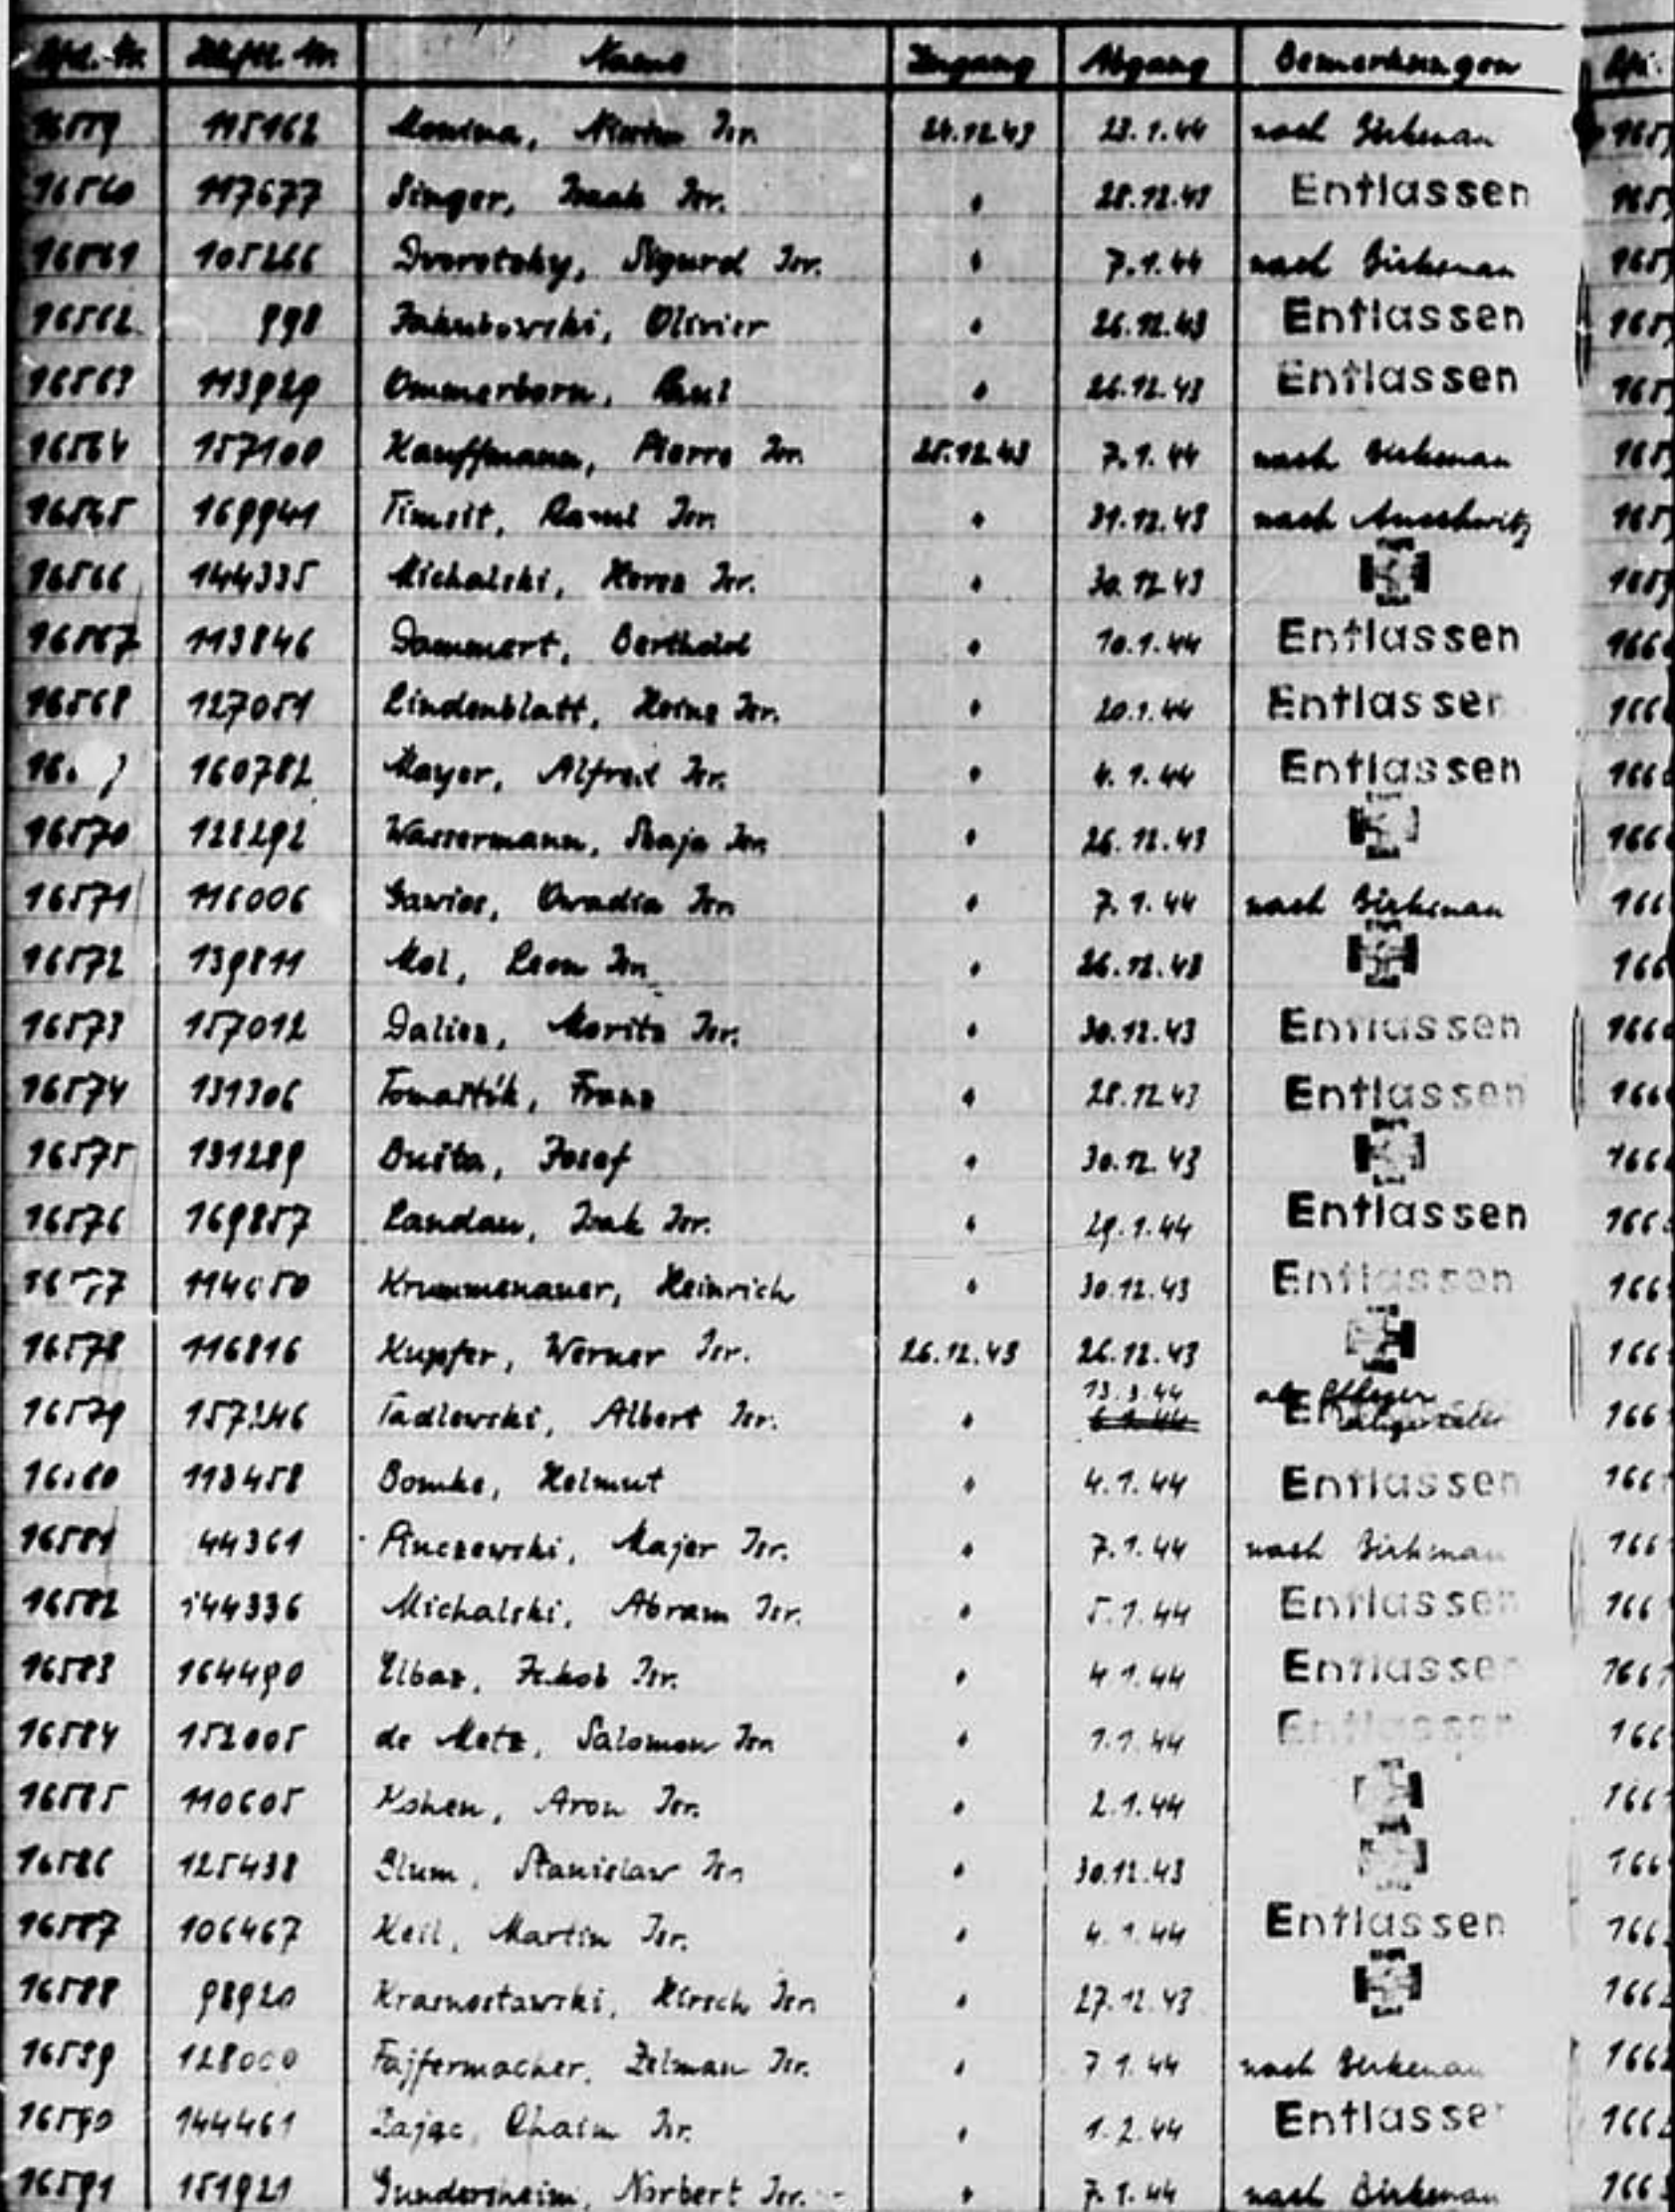 Lfd. Nr. Häftl. Nr. Name Zugang Abgang Bemerkungen
16559 115162 Isr. 24.12.43 23.1.44 nach Birkenau
16560 117677 Singer, Isaak Isr. " 28.12.43 Entlassen
16561 105266 Dvoretzky, Sigurd Isr. " 7.1.44 nach Birkenau
16562 998 Jakubowski, Olivier " 26.12.43 Entlassen
16563 113929 Ommerborn, Paul " 26.12.43 Entlassen
16564 157100 Kauffmann, Pierre Isr. 25.12.43 7.1.44 nach Birkenau
16565 169941 Timsit, Raoul Isr. " 31.12.43 nach Auschwitz
16566 144335 Michalski, Isr. " 30.12.43
16567 113846 Dammert, Berthold " 10.1.44 Entlassen
16568 127051 Lindenblatt, Heinz Isr. " 20.1.44 Entlassen
160782 Mayer, Alfred Isr. " 4.1.44 Entlassen
16570 128292 Wassermann, Isr. " 26.12.43
16571 116006 Isr. " 7.1.44 nach Birkenau
16572 139811 Mol, Leon Isr. " 26.12.43
16573 157012 Moritz Isr. " 30.12.43 Entlassen
16574 131306 Tomaštík, Franz " 28.12.43 Entlassen
16575 131289 Josef " 30.12.43
16576 169857 Landau, Isak Isr. " 29.1.44 Entlassen
16577 Krummenauer, Heinrich " 30.12.43 Entlassen
16578 116816 Kupfer, Werner Isr. 26.12.43 26.12.43
13.3.44 als Pfleger
16579 157246 Tadlewski, Albert Isr. " 6.1.44
16580 113458 Bomke, Helmut " 4.1.44 Entlassen
16581 44361 Pinczewski, Majer Isr. " 7.1.44 nach Birkenau
16582 144336 Michalski, Abram Isr. " 5.1.44 Entlassen
16583 164490 Elbaz, Jakob Isr. " 4.1.44 Entlassen
16584 152005 de Metz, Salomon Isr. " 1.1.44 Entlassen
16585 110605 Kohen, Aron Isr. " 2.1.44
16586 125438 Blum, Stanislaw Isr. " 30.12.43
16587 106467 Keil, Martin Isr. " 4.1.44 Entlassen
16588 98920 Krasnostawski, Hirsch Isr. " 27.12.43
16589 128000 Fajfermacher, Zelman Isr. " 7.1.44 nach Birkenau
16590 144461 Zając, Chaim Isr. " 1.2.44 Entlassen
16591 151921 Gundersheim, Norbert Isr. " 7.1.44 nach Birkenau